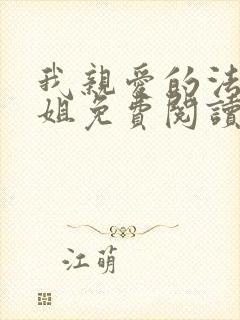 我親愛的法
姐免費閱讀
江萌